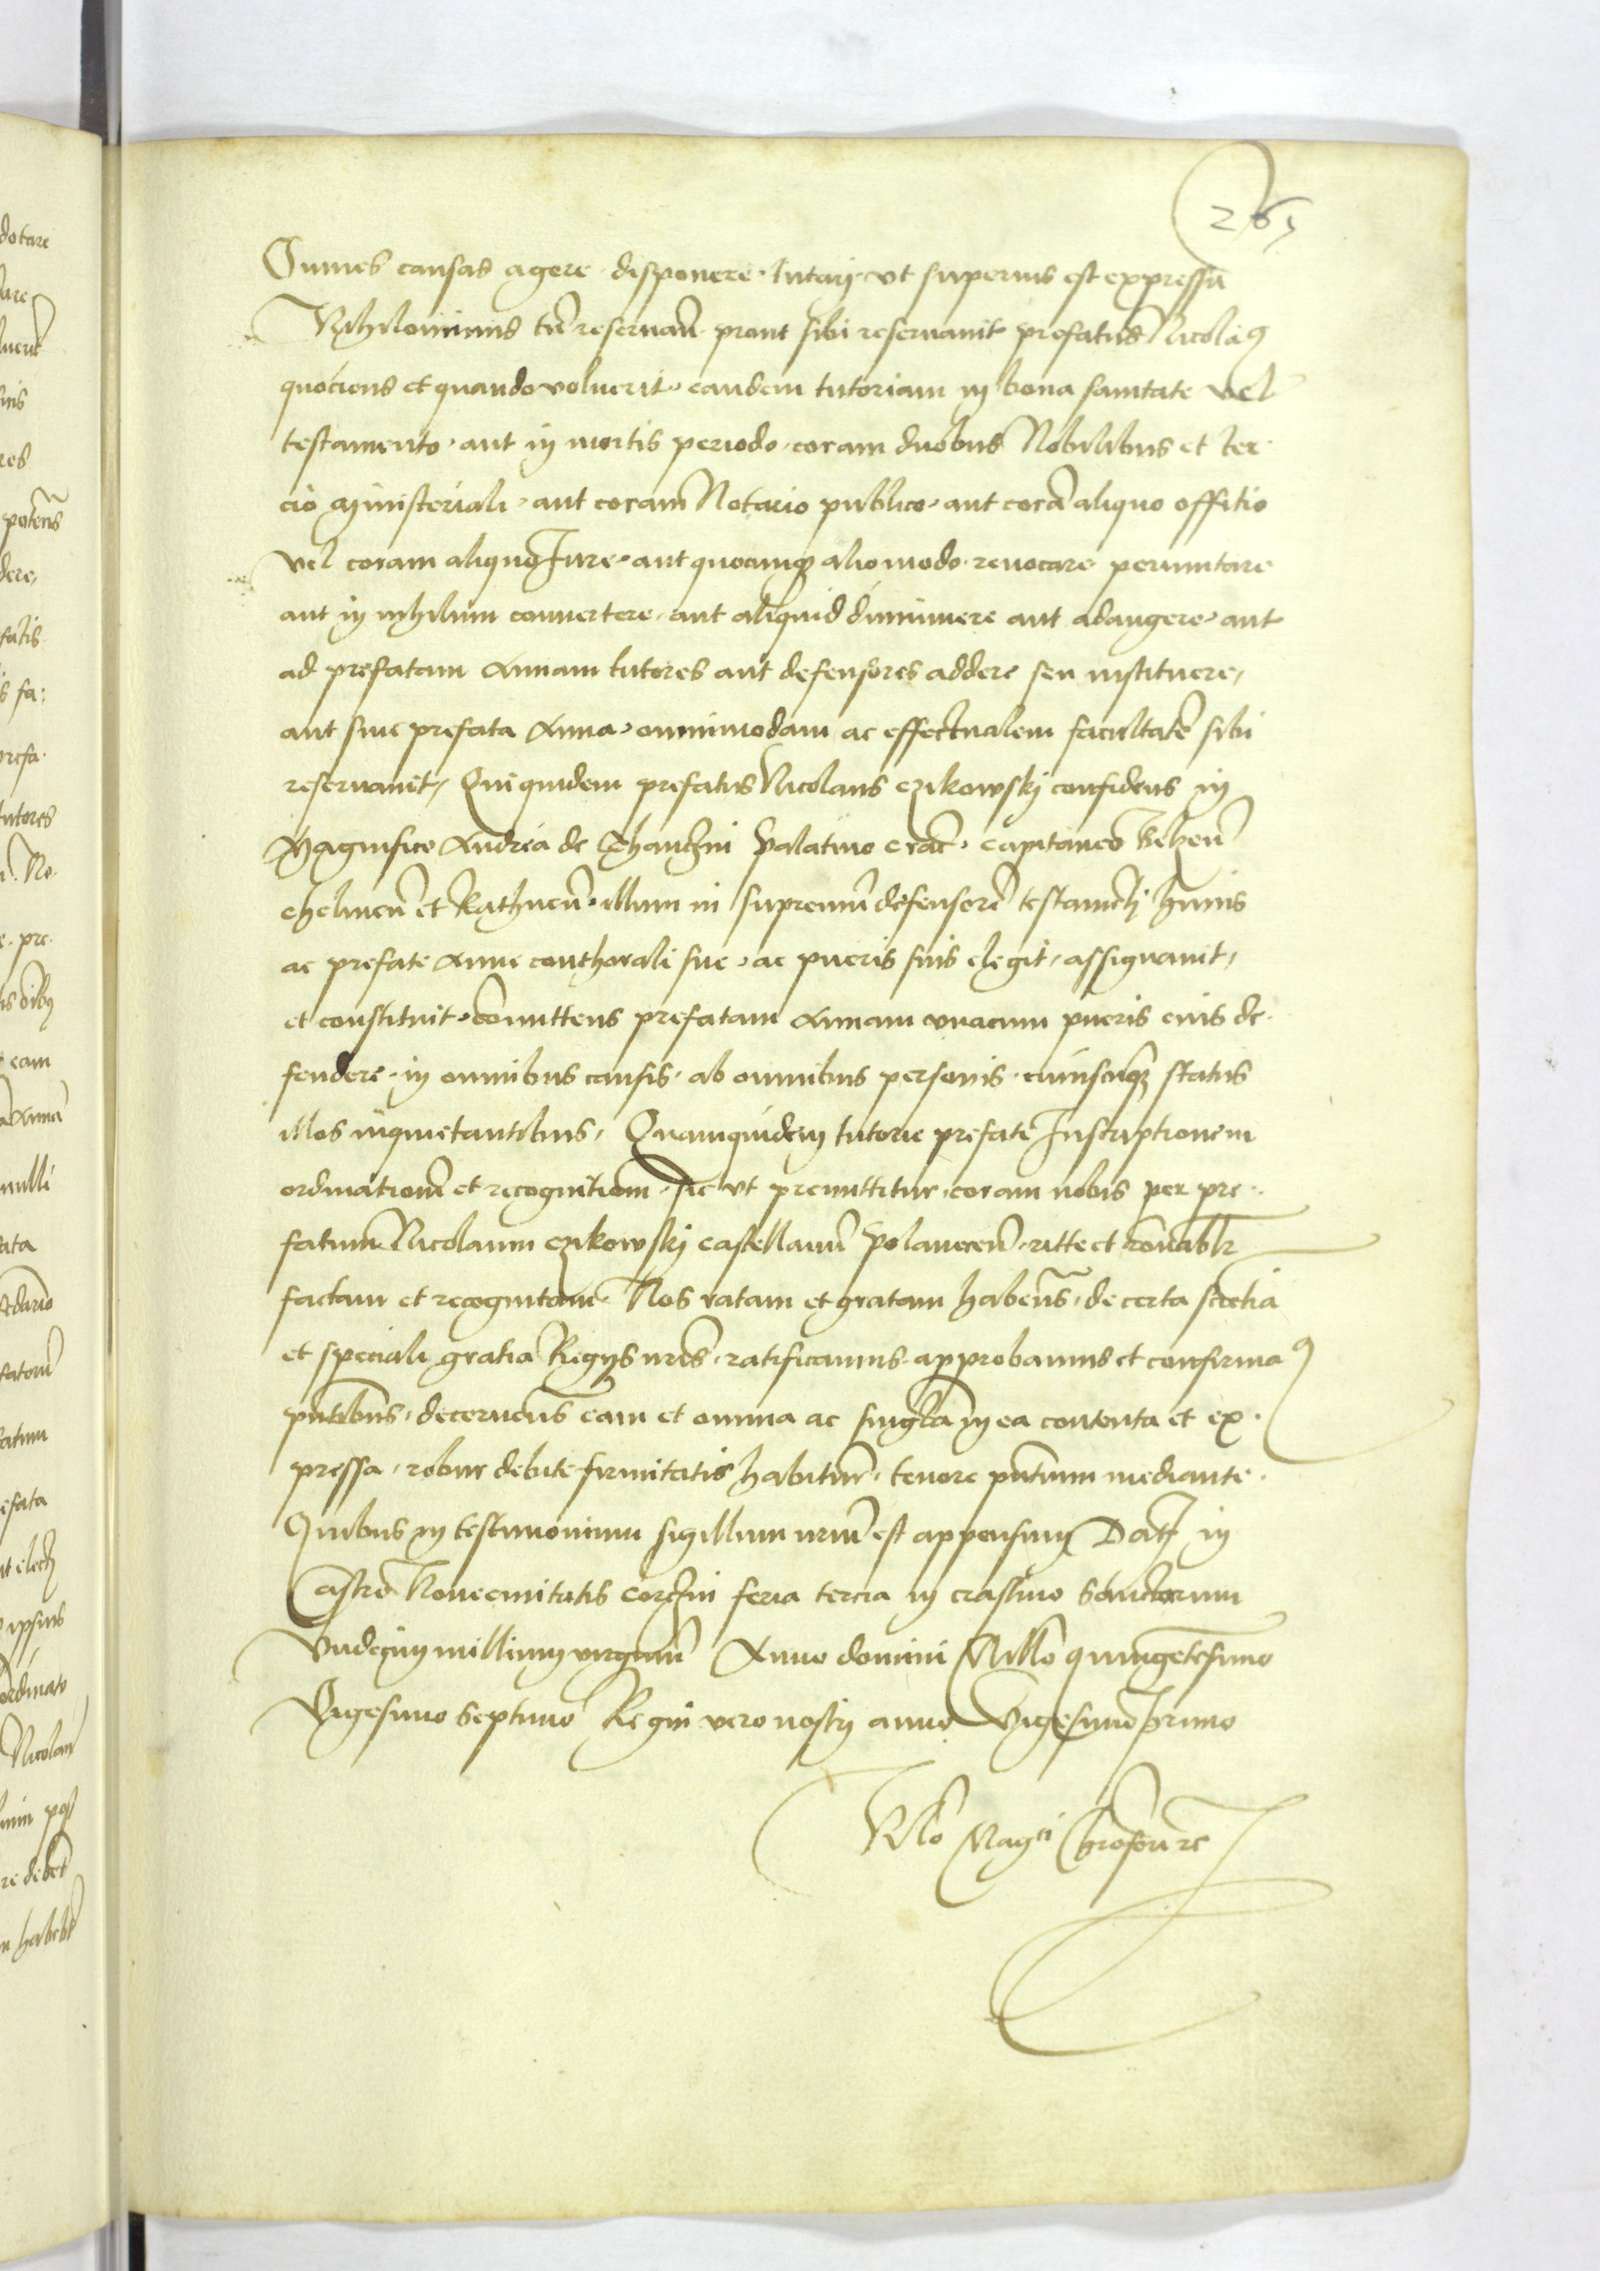 265
Omnes causas agere disponere tutari ut superius est expressū
Nihilominus tn̄ reservan̄ prout sibi reservavit prefatus Nicola9
quociens et quando voluerit eandem tutoriam in bona sanitate vel
testamento aut in mortis periodo coram duobus Nobilibus et ter
cio ministeriali aut coram Notario publico aut corā aliquo offitio
vel coram aliquo Iure aut quocunq3 alio modo revocare permutare
aut in nihilum convertere aut aliquid diminuere aut adaugere aut
ad prefatam Annam tutores aut defensores addere seu instituere
aut sine prefata Anna omnimodam ac effectualem facultatē sibi
reservavit Qui quidem prefatus Nicolaus czikowskj confidens in
Magnifico Andrea de Thanczin Palatino Crac̄ Capitaneo Belzeñ
chelmeñ et Rathneñ illum in supremū defensorē testamētj huius
ac prefate Anne conthorali sue ac pueris suis elegit assignavit
et constituit cōmittens prefatam Annam unacum pueris eius de
fendere in omnibus causis ab omnibus personis cuiuscūq3 status
illos inquietantibus Quamquidem tutorie prefate Inscriptionem
ordinationē et recognitionē sic ut premittitur coram nobis per pre
fatum Nicolaum czikowskj castellanū Polaneceñ ritte et rōnablr
factam et recognitam Nos ratam et gratam habeñs de certa sciētia
et speciali gratia Regijs nr̄is ratificamus approbamus et confirma9
pn̄tibus decerneñs eam et omnia ac singl̄a in ea contenta et ex
pressa robur debite firmitatis habitur̄ tenore pn̄tium mediante
Quibus in testimonium sigillum nr̄um est appensum Dat̄ in
Castro Novecivitatis Corczin feria tercia in crastino Sanctorum
Undecim millium virginū Anno domini Mill̄o quingētesimo
Vigesimo Septimo Regni vero nostrj anno Vigesimo primo